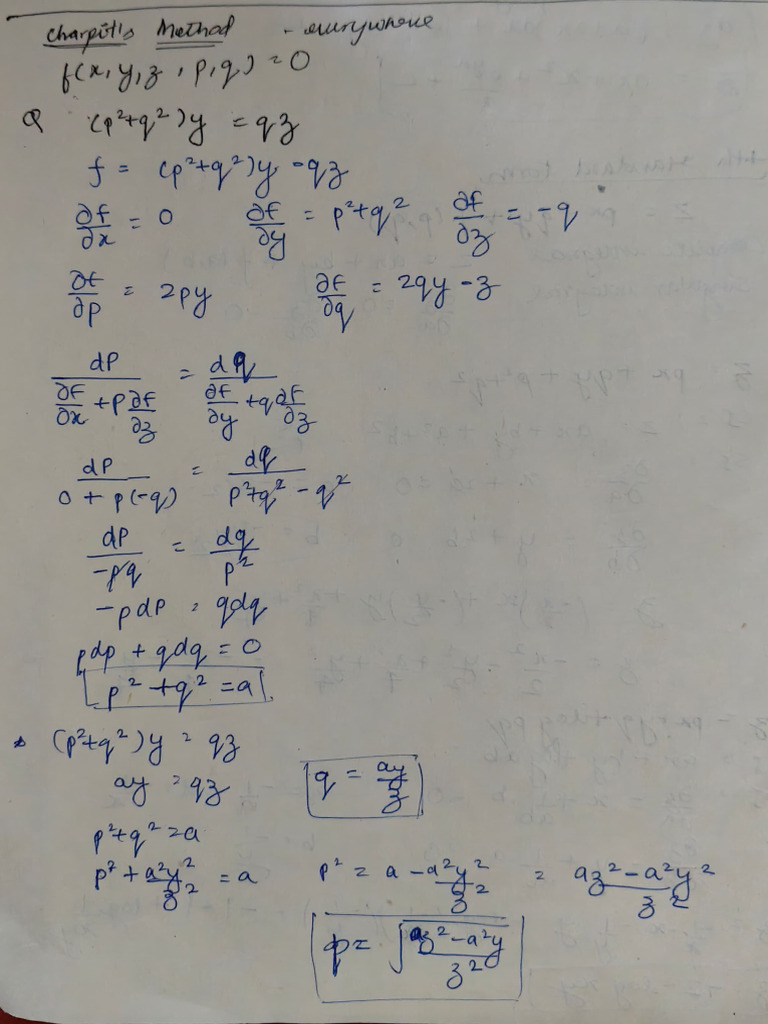 Charpit's Method - everywhere
f(x, y, z, p, q) = 0
Q (p²+q²)y = qz
f = (p²+q²)y - qz
∂f/∂x = 0 ∂f/∂y = p²+q² ∂f/∂z = -q
∂f/∂p = 2py ∂f/∂q = 2qy - z
dp/(∂f/∂x + p ∂f/∂z) = dq/(∂f/∂y + q ∂f/∂z)
dp/(0 + p(-q)) = dq/(p²+q² - q²)
dp/-pq = dq/p²
-pdp = qdq
pdp + qdq = 0
p² + q² = a
(p²+q²)y = qz
ay = qz q = ay/z
p²+q² = a
p² + a²y²/z² = a p² = a - a²y²/z² = (az² - a²y²)/z²
p = √((az² - a²y)/z²)